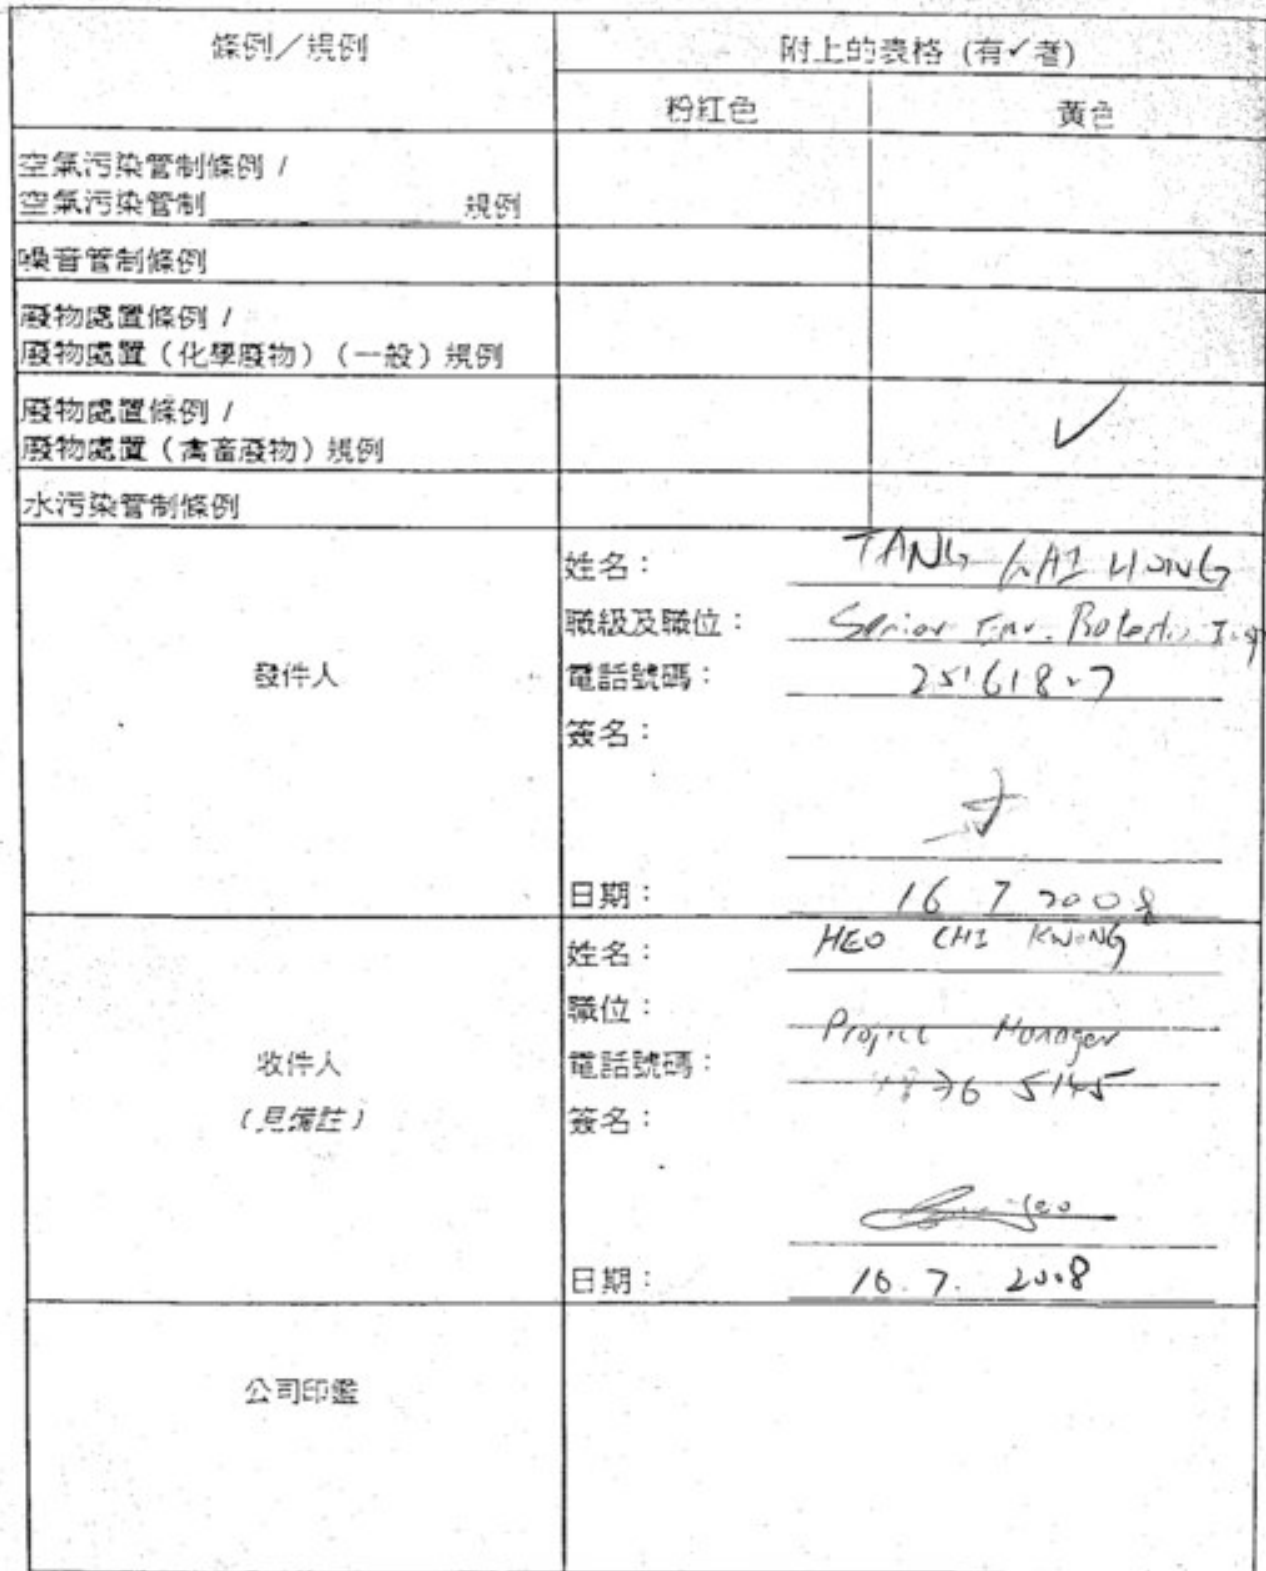 條例／規例
附上的表格 (有✓者)
粉紅色 黃色
空氣污染管制條例 /
空氣污染管制 規例
噪音管制條例
廢物處置條例 /
廢物處置（化學廢物）（一般）規例
廢物處置條例 /
廢物處置（禽畜廢物）規例 ✓
水污染管制條例
發件人
姓名： TANG HONG
職級及職位： Senior Env.
電話號碼：
簽名：
日期： 16 7 2008
收件人
(見備註)
姓名： HEO CHI KWONG
職位： Project Manager
電話號碼： 5145
簽名：
日期： 16.7.2008
公司印鑑